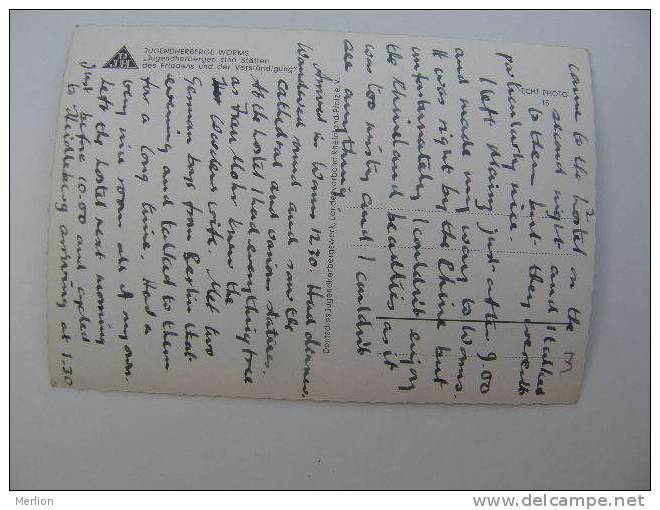 JUGENDHERBERGE WORMS
„Jugendherbergen sind Stätten
des Friedens und der Verständigung"
ECHT PHOTO
15
came to the hostel on the 2
second night and I talked
to them but they weren't
particularly nice.
I left Mainz just after 9.00
and made my way to Worms.
It was right by the Rhine but
unfortunately I couldn't enjoy
the Rhineland beauties as it
was too misty and I couldn't
see anything.
Deutsches Jugendherbergswerk, Landesverband Rheinland-Pfalz e. V.
Arrived in Worms 12.30. Had dinner,
Wandered round and saw the
Cathedral and various statues.
At the hostel I had everything free
as Frau Mohr knew the
Warden's wife. Met two
German boys from Berlin that
evening and talked to them
for a long time. Had a
very nice room all to my own.
Left the hostel next morning
just before 10.00 and cycled
to Heidelberg arriving at 1.30
Merlion
www.delcampe.net